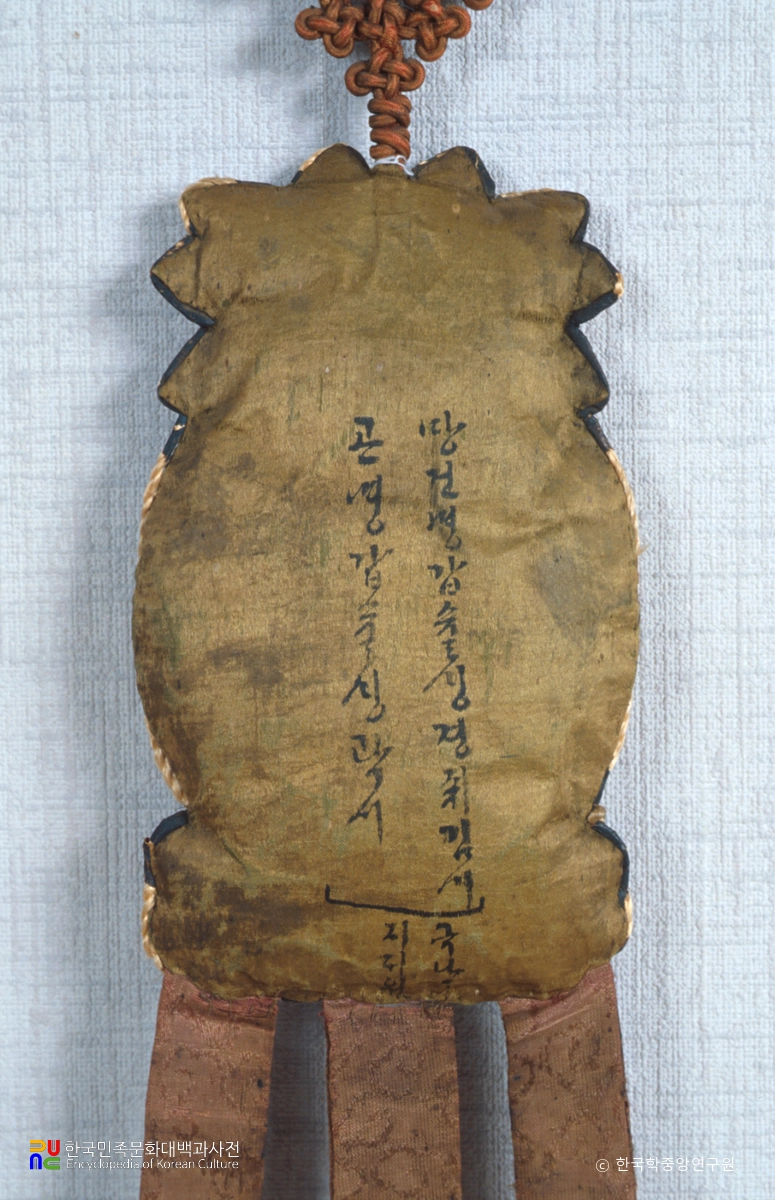 땅건명갑슐싱경쥐김시
곤명갑슐싱곽시
한국민족문화대백과사전
Encyclopedia of Korean Culture
© 한국학중앙연구원